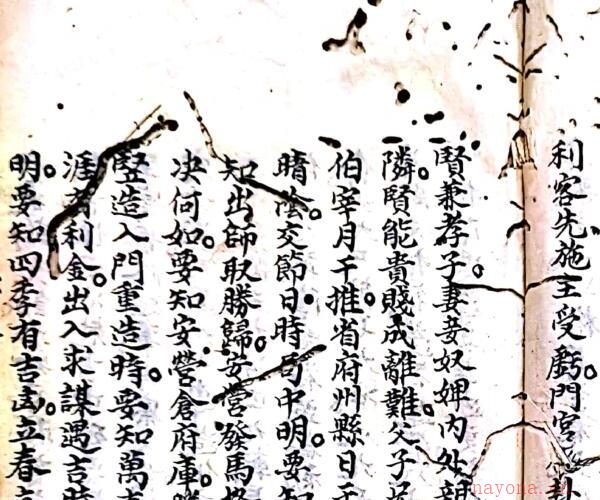 利客先施主受虧。門宮
賢兼孝子。妻妾奴婢內外
隣。賢能貴賤成離難。父子
伯宰月干推。省府州縣日干
晴陰。交節日時局中明。要知
知出師取勝歸。安營發馬
决何如。要知安營倉府庫。
竪造入門重造時。要知萬
涯有利金。出入求謀遇吉時
明。要知四季有吉凶。立春
nayona.cn